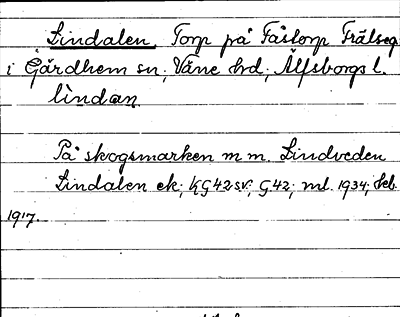 Lindalen Torp på Fåstorp Trälseg
i Gärdhem sn; Väne hrd; Älfsborgs l.
lìndan
På skogsmarken m m. Lindveden
Lindalen ek; KG 42 sv; G. 42; ml. 1934; Heb.
1917.